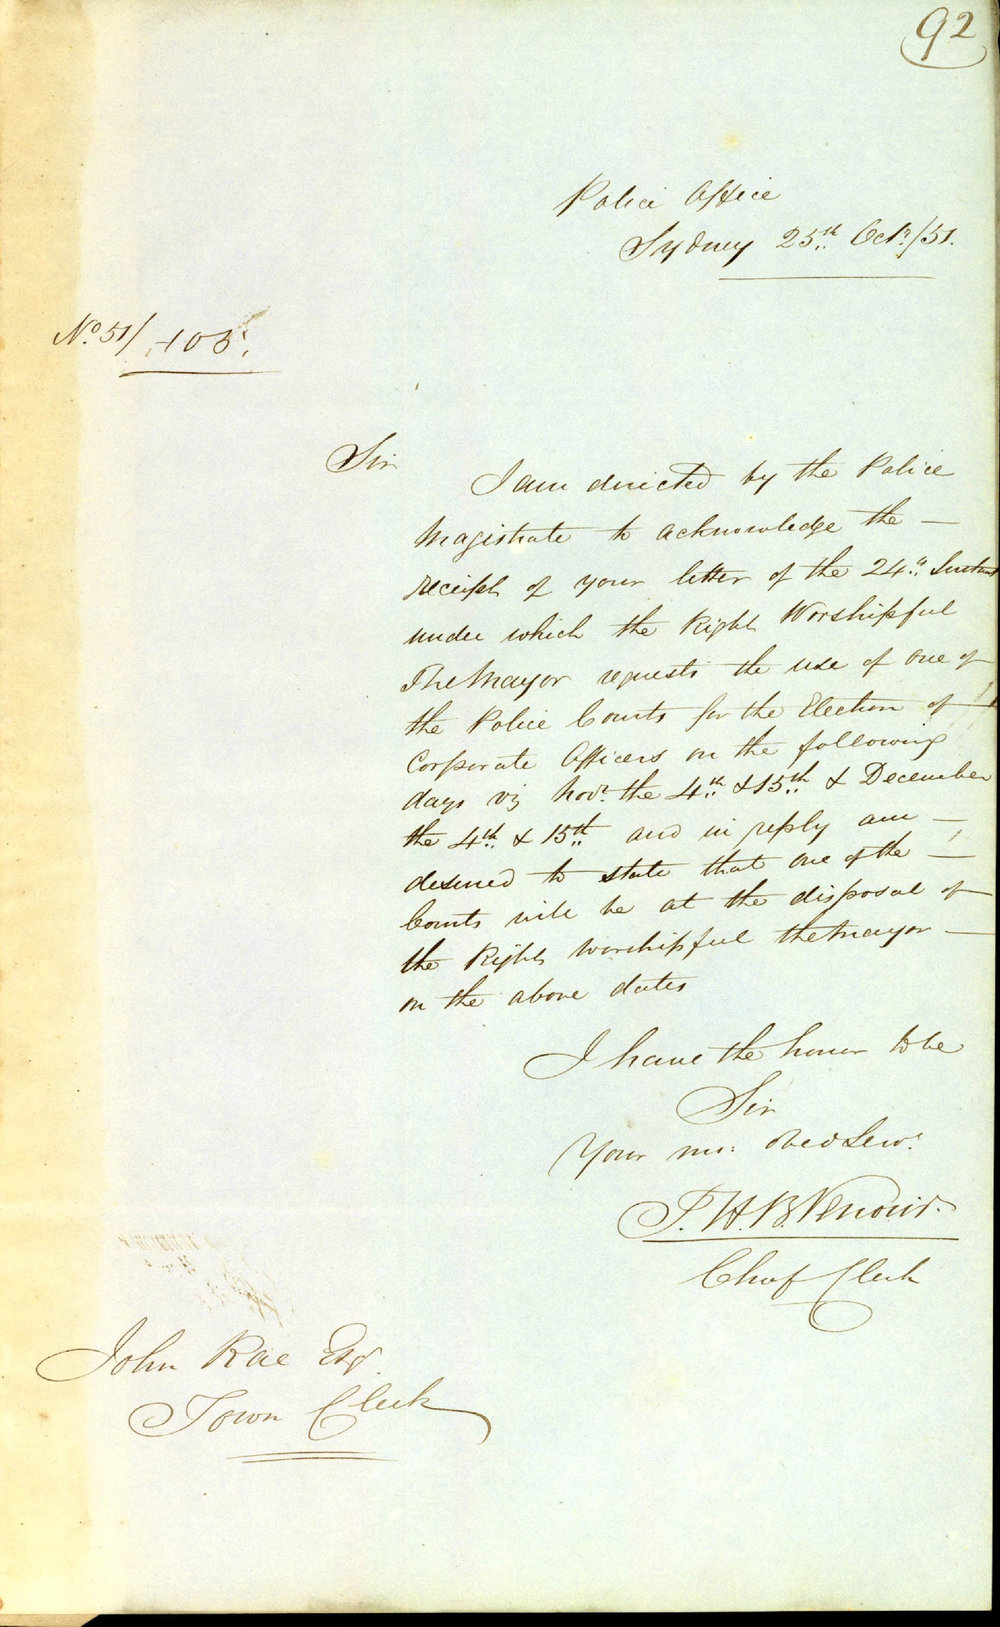 92
Police Office
Sydney 25th Octr/51.
No. 51/103.
Sir
I am directed by the Police
Magistrate to acknowledge the —
receipt of your letter of the 24th Instant
under which the Right Worshipful
The Mayor requests the use of one of
the Police Courts for the Election of
Corporate Officers on the following
days viz Novr. the 4th & 15th & December
the 4th & 15th and in reply am —
desired to state that one of the —
Courts will be at the disposal of
the Right Worshipful the Mayor —
on the above dates
I have the honor to be
Sir
Your mo: Obed Serv:
Chief Clerk
John Rae Esqr.
Town Clerk